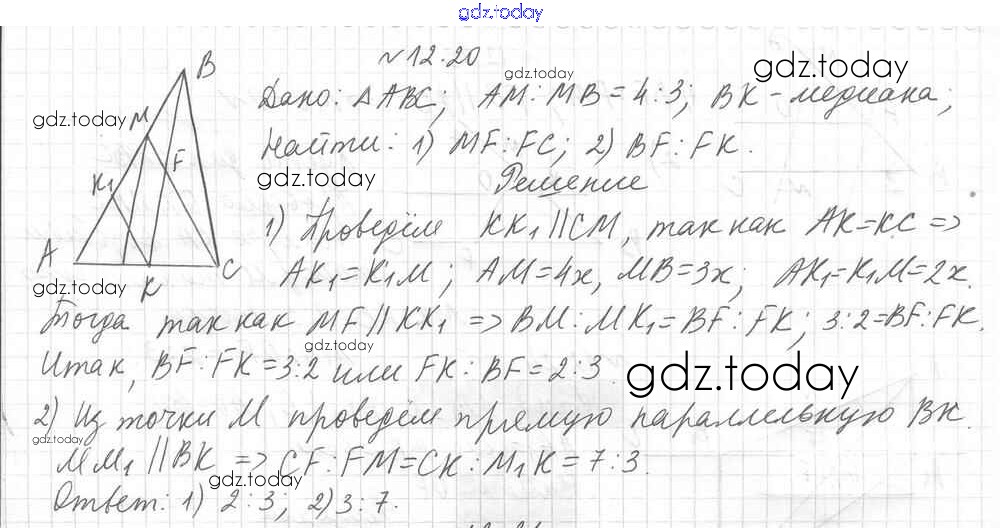 gdz.today
№12.20
gdz.today gdz.today
Дано: △ABC; AM:MB=4:3; BK-медиана;
gdz.today
Найти: 1) MF:FC; 2) BF:FK.
gdz.today
Решение
1) Проведём KK₁||CM, так как AK=KC =>
AK₁=K₁M; AM=4x, MB=3x; AK₁=K₁M=2x.
gdz.today
Тогда так как MF||KK₁ => BM:MK₁=BF:FK; 3:2=BF:FK.
gdz.today
Итак, BF:FK=3:2 или FK:BF=2:3
gdz.today
2) Из точки M проведём прямую параллельную BK.
gdz.today
MM₁||BK => CF:FM=CK:M₁K=7:3.
gdz.today
Ответ: 1) 2:3; 2) 3:7.
B
M
F
K₁
A
K
C